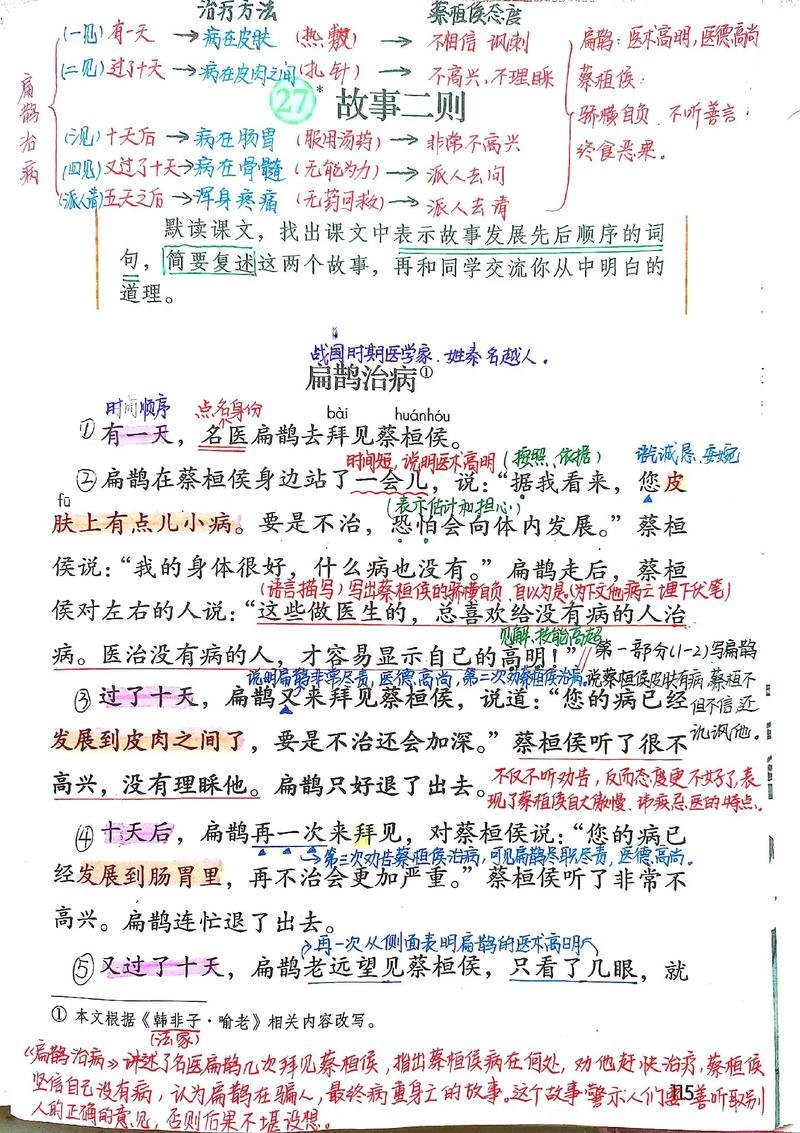 治疗方法 蔡桓侯态度
(一见)有一天→病在皮肤(热敷)→不相信 讽刺
(二见)过了十天→病在皮肉之间(扎针)→不高兴、不理睬
27* 故事二则
(三见)十天后→病在肠胃(服用汤药)→非常不高兴
(四见)又过了十天→病在骨髓(无能为力)→派人去问
(派人请)五天之后→浑身疼痛(无药可救)→派人去请
扁鹊治病
扁鹊:医术高明,医德高尚
蔡桓侯:
骄横自负、不听善言
终食恶果。
默读课文,找出课文中表示故事发展先后顺序的词
句,简要复述这两个故事,再和同学交流你从中明白的
道理。
战国时期医学家.姓秦名越人.
扁鹊治病①
时间顺序 点名身份 bài huánhóu
①有一天,名医扁鹊去拜见蔡桓侯。
时间短,说明医术高明(按照、依据) 语气诚恳、委婉
②扁鹊在蔡桓侯身边站了一会儿,说:“据我看来,您皮
fū (表示估计和担心)
肤上有点儿小病。要是不治,恐怕会向体内发展。”蔡桓
侯说:“我的身体很好,什么病也没有。”扁鹊走后,蔡桓
(语言描写)写出蔡桓侯的骄横自负、自以为是(为下文他病亡埋下伏笔)
侯对左右的人说:“这些做医生的,总喜欢给没有病的人治
见解、技能高超
病。医治没有病的人,才容易显示自己的高明!”
第一部分(1-2)写扁鹊
说蔡桓侯皮肤有病,蔡桓不
但不信,还
讥讽他。
说明扁鹊非常尽责,医德高尚,第二次劝蔡桓侯治病.
③过了十天,扁鹊又来拜见蔡桓侯,说道:“您的病已经
发展到皮肉之间了,要是不治还会加深。”蔡桓侯听了很不
高兴,没有理睬他。扁鹊只好退了出去。
不仅不听劝告,反而态度更不好了,表
现了蔡桓侯自大傲慢、讳疾忌医的特点.
④十天后,扁鹊再一次来拜见,对蔡桓侯说:“您的病已
→第三次劝告蔡桓侯治病,可见扁鹊尽职尽责,医德高尚。
经发展到肠胃里,再不治会更加严重。”蔡桓侯听了非常不
高兴。扁鹊连忙退了出去。
再一次从侧面表明扁鹊的医术高明
⑤又过了十天,扁鹊老远望见蔡桓侯,只看了几眼,就
① 本文根据《韩非子·喻老》相关内容改写。
(法家)
《扁鹊治病》讲述了名医扁鹊几次拜见蔡桓侯,指出蔡桓侯病在何处,劝他赶快治疗,蔡桓侯
坚信自己没有病,认为扁鹊在骗人,最终病重身亡的故事。这个故事警示人们要善听取别
人的正确的意见,否则后果不堪设想.
115